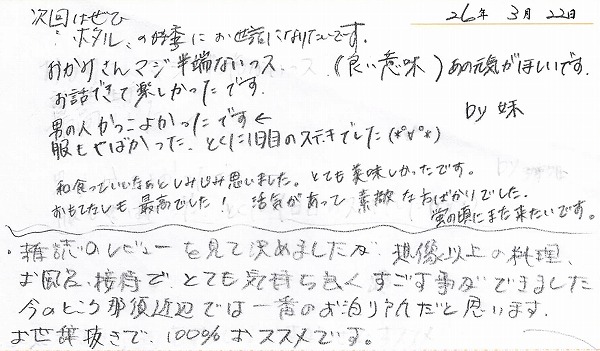 26年 3月 22日
次回はぜひ
"ホタル"の好季にお世話になりたいです。
おかみさんマジ半端ないっス、(良い意味)あの元気がほしいです。
お話できて楽しかったです。
by 妹
男の人がっこよかったです←
服もやばかった、とくに1日目のステキでした(*°∀°*)
和食っていいなぁとしみじみ思いました。とても美味しかったです。
おもてなしも最高でした! 活気があって素敵な方ばかりでした。
蛍の頃にまた来たいです。
・雑誌のレビューを見て決めましたが、想像以上の料理、
お風呂、接待で、とても気持ち良くすごす事ができました
今のところ那須近辺では一番のお泊りアんだと思います。
お世辞抜きで、100%おススメです。